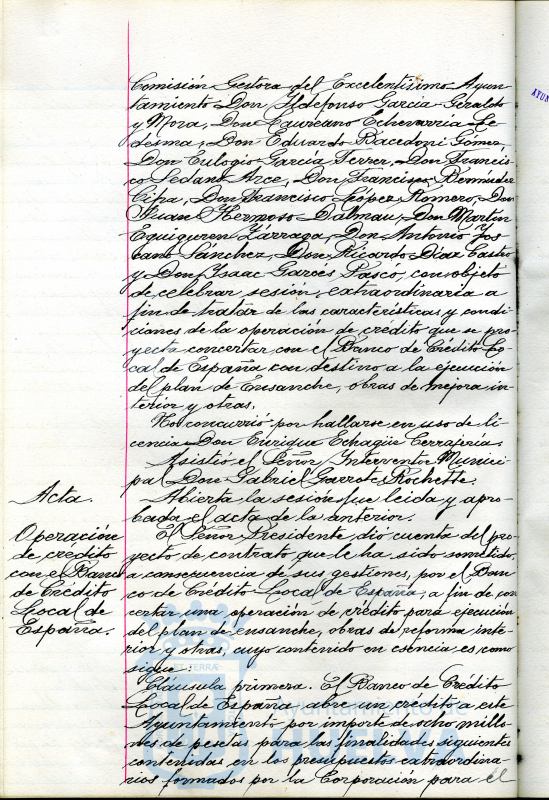 Comisión Gestora del Excelentísimo Ayun-
tamiento Don Ildefonso García-Geraldo
y Mora, Don Laureano Echevarría Le-
desma, Don Eduardo Bacedoni Gómez,
Don Eulogio García Ferrer, Don Francis-
co Sedano Arce, Don Francisco Bermúdez
Cifra, Don Francisco López Romero, Don
Juan Hermoso Dalmau, Don Martín
Equiguren Zárraga, Don Antonio Tos-
cano Sánchez, Don Ricardo Díaz Castro
y Don Ysaac Garcés Pasco, con objeto
de celebrar sesión extraordinaria a
fin de tratar de las características y condi-
ciones de la operación de crédito que se pro-
yecta concertar con el Banco de Crédito Lo-
cal de España con destino a la ejecución
del plan de Ensanche, obras de mejora in-
terior y otras.
No concurrió por hallarse en uso de li-
cencia Don Enrique Echagüe
Asistió el Señor Interventor Munici-
pal Don Gabriel Garrote Rochette.
Acta.
Abierta la sesión fue leida y apro-
bada el acta de la anterior.
Operación
de crédito
con el Banco
de Crédito
Local de
España.
El Señor Presidente dio cuenta del pro-
yecto de contrato que le ha sido sometido,
a consecuencia de sus gestiones, por el Ban-
co de Crédito Local de España, a fin de con-
certar una operación de crédito para ejecución
del plan de ensanche, obras de reforma inte-
rior y otras, cuyo contenido en esencia es como
sigue:
Cláusula primera. El Banco de Crédito
Local de España abre un crédito a este
Ayuntamiento por importe de ocho millo-
nes de pesetas para las finalidades siguientes
contenidas en los presupuestos extraordina-
rios formados por la Corporación para el
Ayuntamiento de
HUELVA